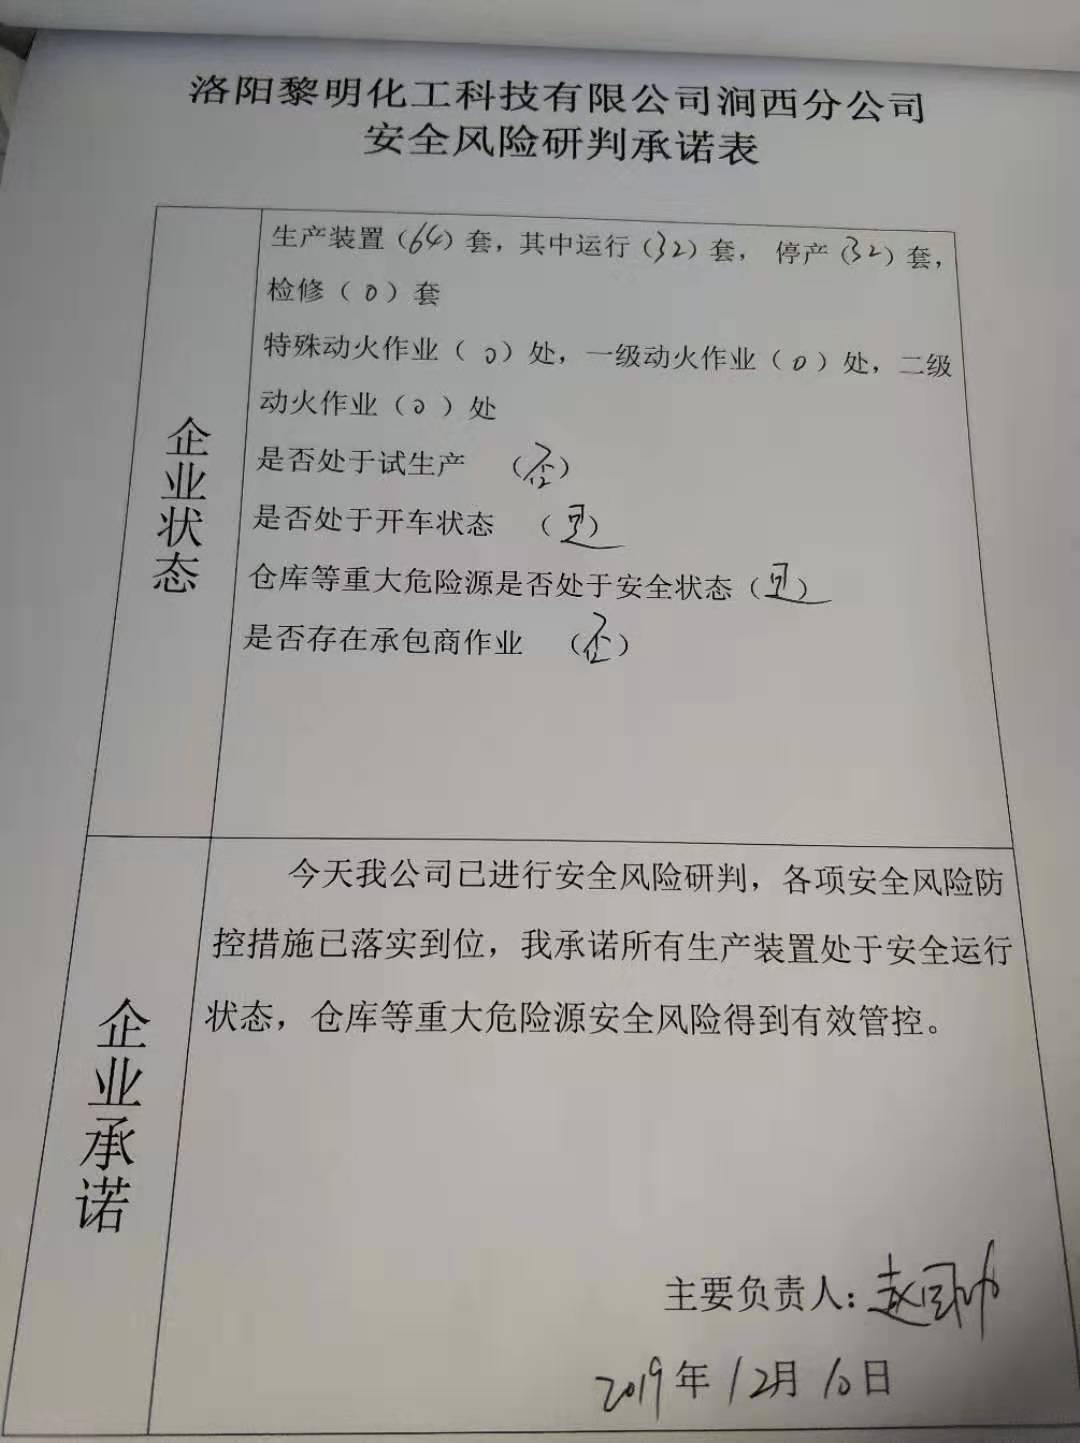 洛阳黎明化工科技有限公司涧西分公司
安全风险研判承诺表
企业状态
生产装置（64）套，其中运行（32）套， 停产（32）套，
检修（0）套
特殊动火作业（0）处，一级动火作业（0）处，二级
动火作业（0）处
是否处于试生产 （否）
是否处于开车状态 （是）
仓库等重大危险源是否处于安全状态（是）
是否存在承包商作业 （否）
企业承诺
今天我公司已进行安全风险研判，各项安全风险防
控措施已落实到位，我承诺所有生产装置处于安全运行
状态，仓库等重大危险源安全风险得到有效管控。
主要负责人：赵国帅
2019年12月10日